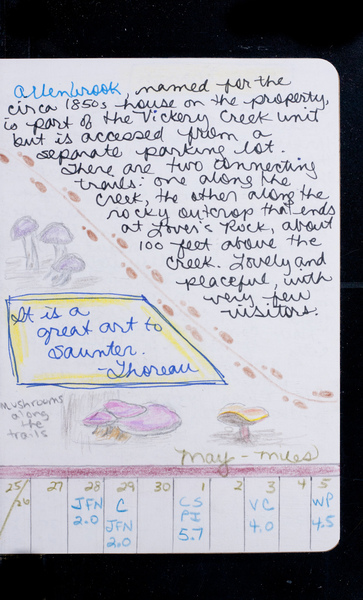 Allenbrook, named for the
circa 1850s house on the property,
is part of the Vickery Creek unit
but is accessed from a
separate parking lot.
There are two connecting
trails: one along the
creek, the other along the
rocky outcrop that ends
at Lover's Rock, about
100 feet above the
creek. Lovely and
peaceful, with
very few
visitors.
It is a
great art to
saunter.
-Thoreau
Mushrooms
along
the
trails
May - miles
25/26 27 28 29 30 1 2 3 4 5
JFN 2.0
C JFN 2.0
CS PI 5.7
VC 4.0
WP 4.5